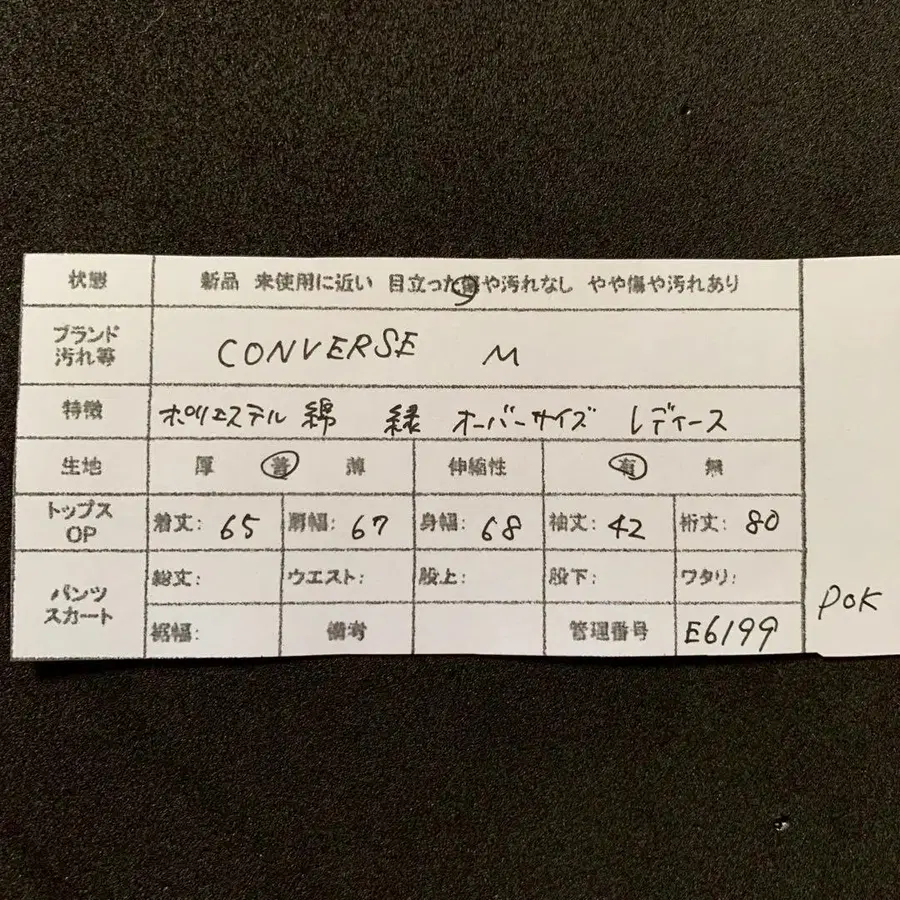 状態 新品 未使用に近い 目立った傷や汚れなし やや傷や汚れあり
ブランド
汚れ等
CONVERSE M
特徴 ポリエステル 綿 緑 オーバーサイズ レディース
生地 厚 普 薄 伸縮性 有 無
トップス
OP
着丈: 65 肩幅: 67 身幅: 68 袖丈: 42 裄丈: 80
パンツ
スカート
総丈: ウエスト: 股上: 股下: ワタリ:
裾幅: 備考 管理番号 E6199
POK